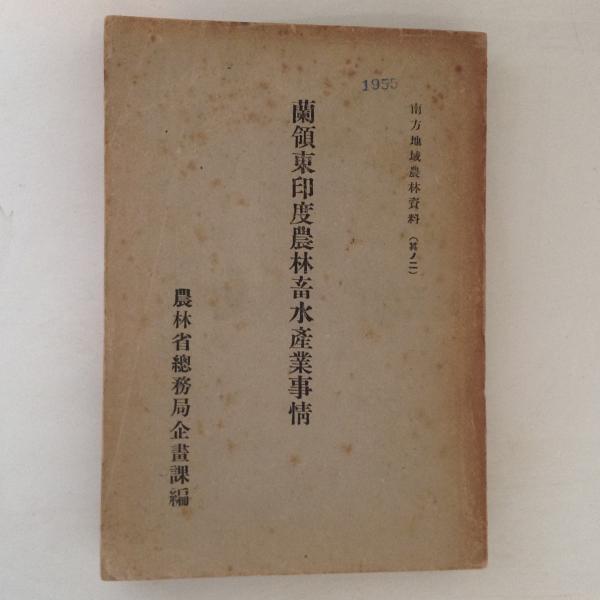 1955
南方地域農林資料（其ノ二）
蘭領東印度農林畜水產業事情
農林省總務局企畫課編